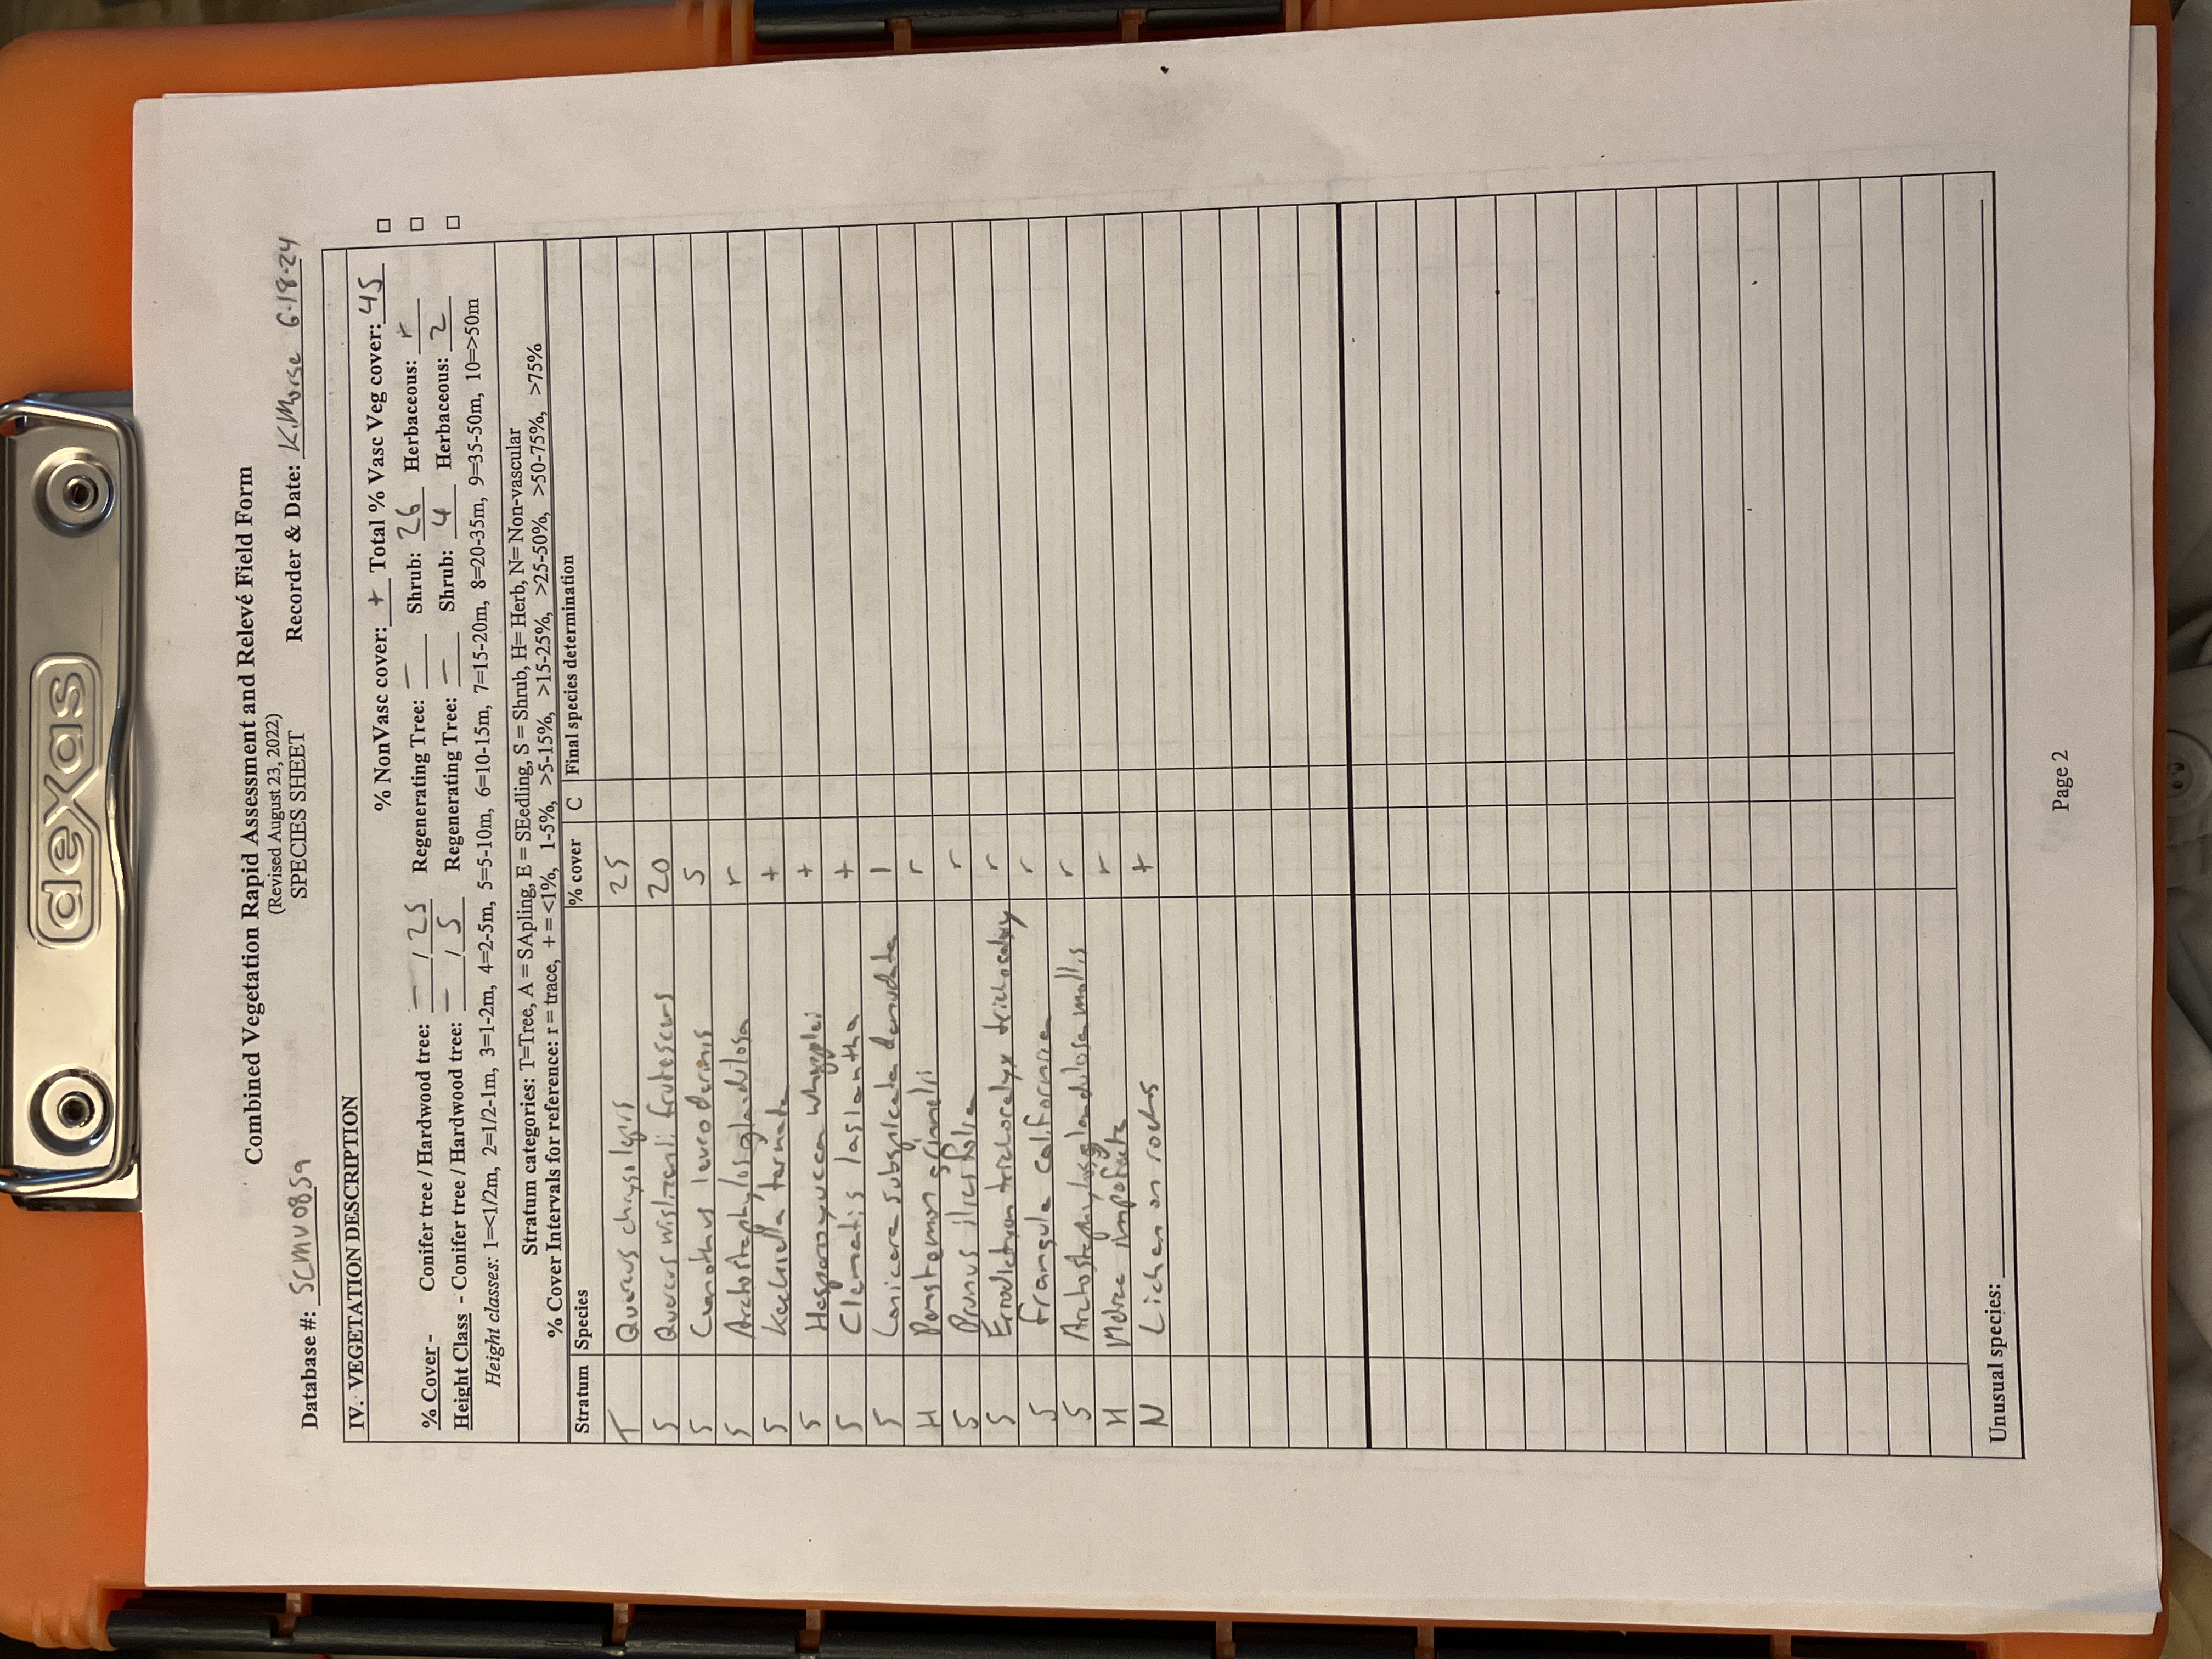 dexas
Combined Vegetation Rapid Assessment and Relevé Field Form
(Revised August 23, 2022)
SPECIES SHEET
Database #: SCMV0859 Recorder & Date: K.Morse 6-18-24
IV. VEGETATION DESCRIPTION
% NonVasc cover: + Total % Vasc Veg cover: 45 □
% Cover - Conifer tree / Hardwood tree: — / 25 Regenerating Tree: — Shrub: 26 Herbaceous: r □
Height Class - Conifer tree / Hardwood tree: — / 5 Regenerating Tree: — Shrub: 4 Herbaceous: 2 □
Height classes: 1=<1/2m, 2=1/2-1m, 3=1-2m, 4=2-5m, 5=5-10m, 6=10-15m, 7=15-20m, 8=20-35m, 9=35-50m, 10=>50m
Stratum categories: T=Tree, A = SApling, E = SEedling, S = Shrub, H= Herb, N= Non-vascular
% Cover Intervals for reference: r = trace, + = <1%, 1-5%, >5-15%, >15-25%, >25-50%, >50-75%, >75%
Stratum Species % cover C Final species determination
T Quercus chrysolepis 25
S Quercus wislizeni frutescens 20
S Ceanothus leucodermis 5
S Arctostaphylos glandulosa r
S Keckiella ternata +
S Hesperoyucca whipplei +
S Clematis lasiantha +
S Lonicera subspicata denudata 1
H Penstemon grinnellii r
S Prunus ilicifolia r
S Eriodictyon trichocalyx trichocalyx r
S Frangula californica r
S Arctostaphylos glandulosa mollis r
H Melica imperfecta r
N Lichen on rocks +
Unusual species:
Page 2